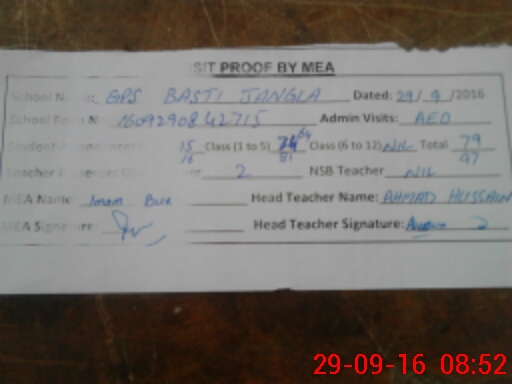 SIT PROOF BY MEA
School N : GPS BASTI JANGLA Dated: 29/9/2016
School Form N : 1609290842715 Admin Visits: AEO
Student A 15/16 Class (1 to 5) 64/81 Class (6 to 12) NIL Total 79/97
Teacher 2 NSB Teacher NIL
MEA Name Imam Bux Head Teacher Name: AHMAD HUSSAIN
MEA Signature: Head Teacher Signature:
29-09-16 08:52